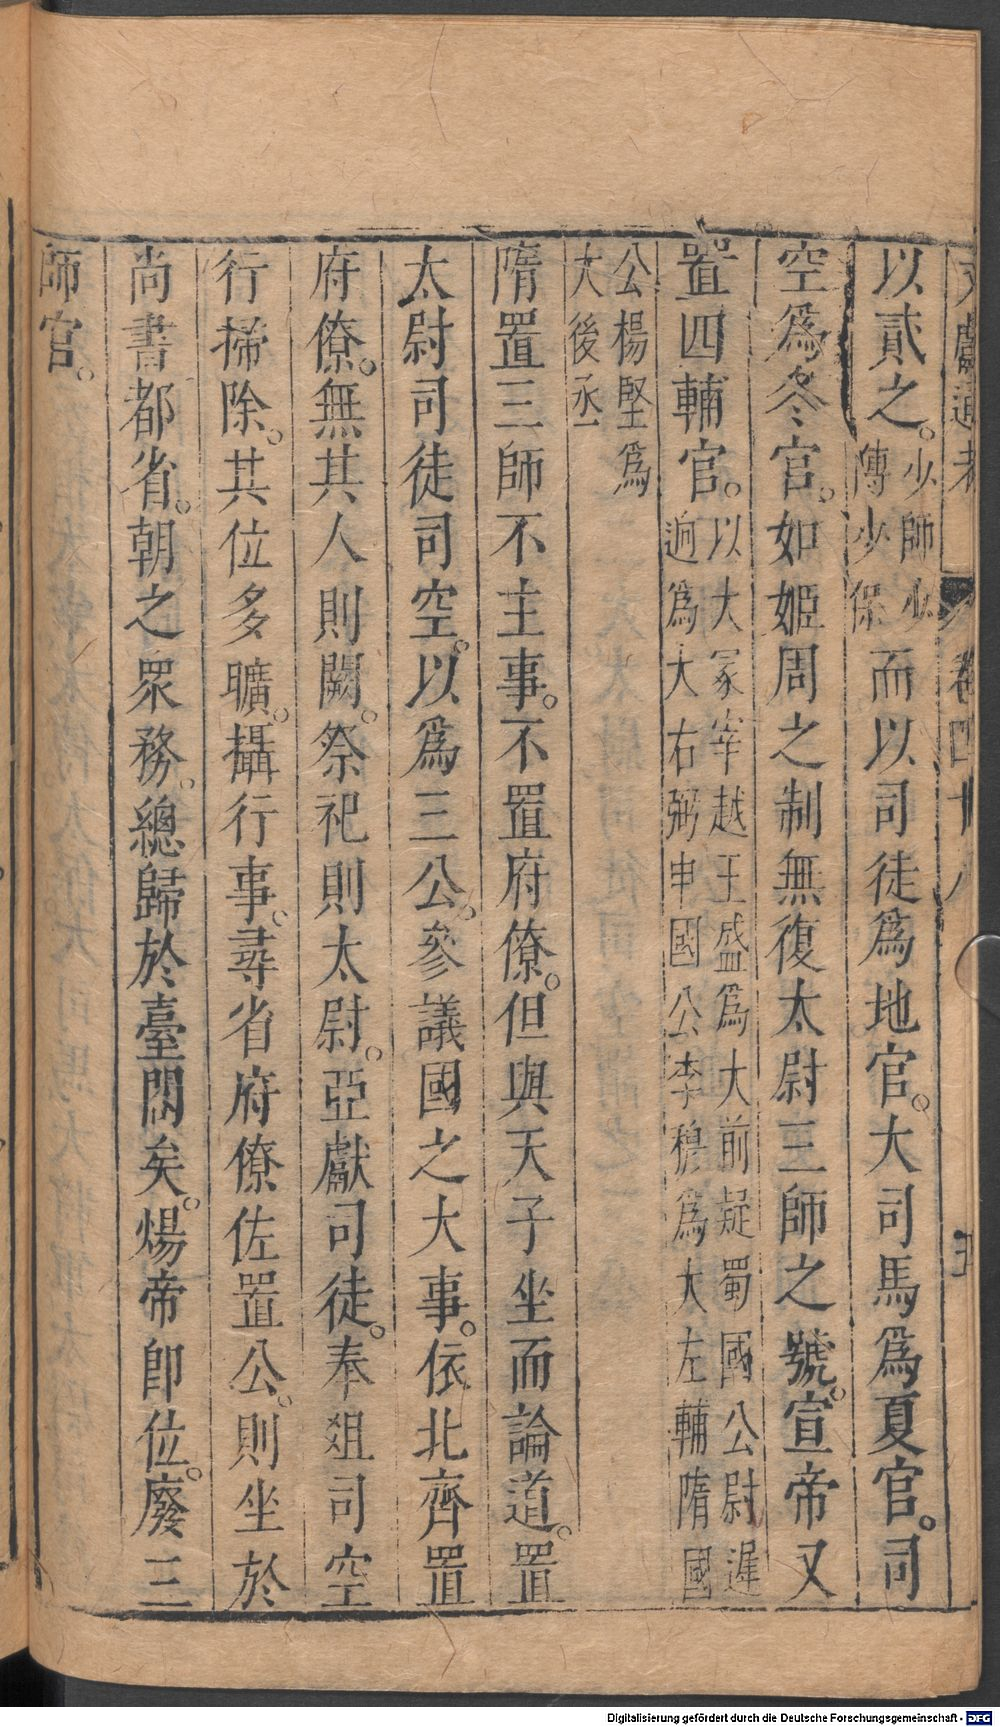 文獻通考 卷四十八 五
以貳之。少師少傅少保而以司徒爲地官。大司馬爲夏官。司
空爲冬官。如姬周之制無復太尉三師之號。宣帝又
置四輔官。以大冢宰越王盛爲大前疑蜀國公尉遲迥爲大右弼申國公李穆爲大左輔隋國
公楊堅爲大後丞
隋置三師不主事。不置府僚。但與天子坐而論道。置
太尉司徒司空。以爲三公。參議國之大事。依北齊置
府僚。無其人則闕。祭祀則太尉。亞獻司徒。奉俎司空
行掃除。其位多曠。攝行事。尋省府僚佐置公。則坐於
尚書都省。朝之衆務。總歸於臺閣矣。煬帝卽位。廢三
師官。
Digitalisierung gefördert durch die Deutsche Forschungsgemeinschaft - DFG